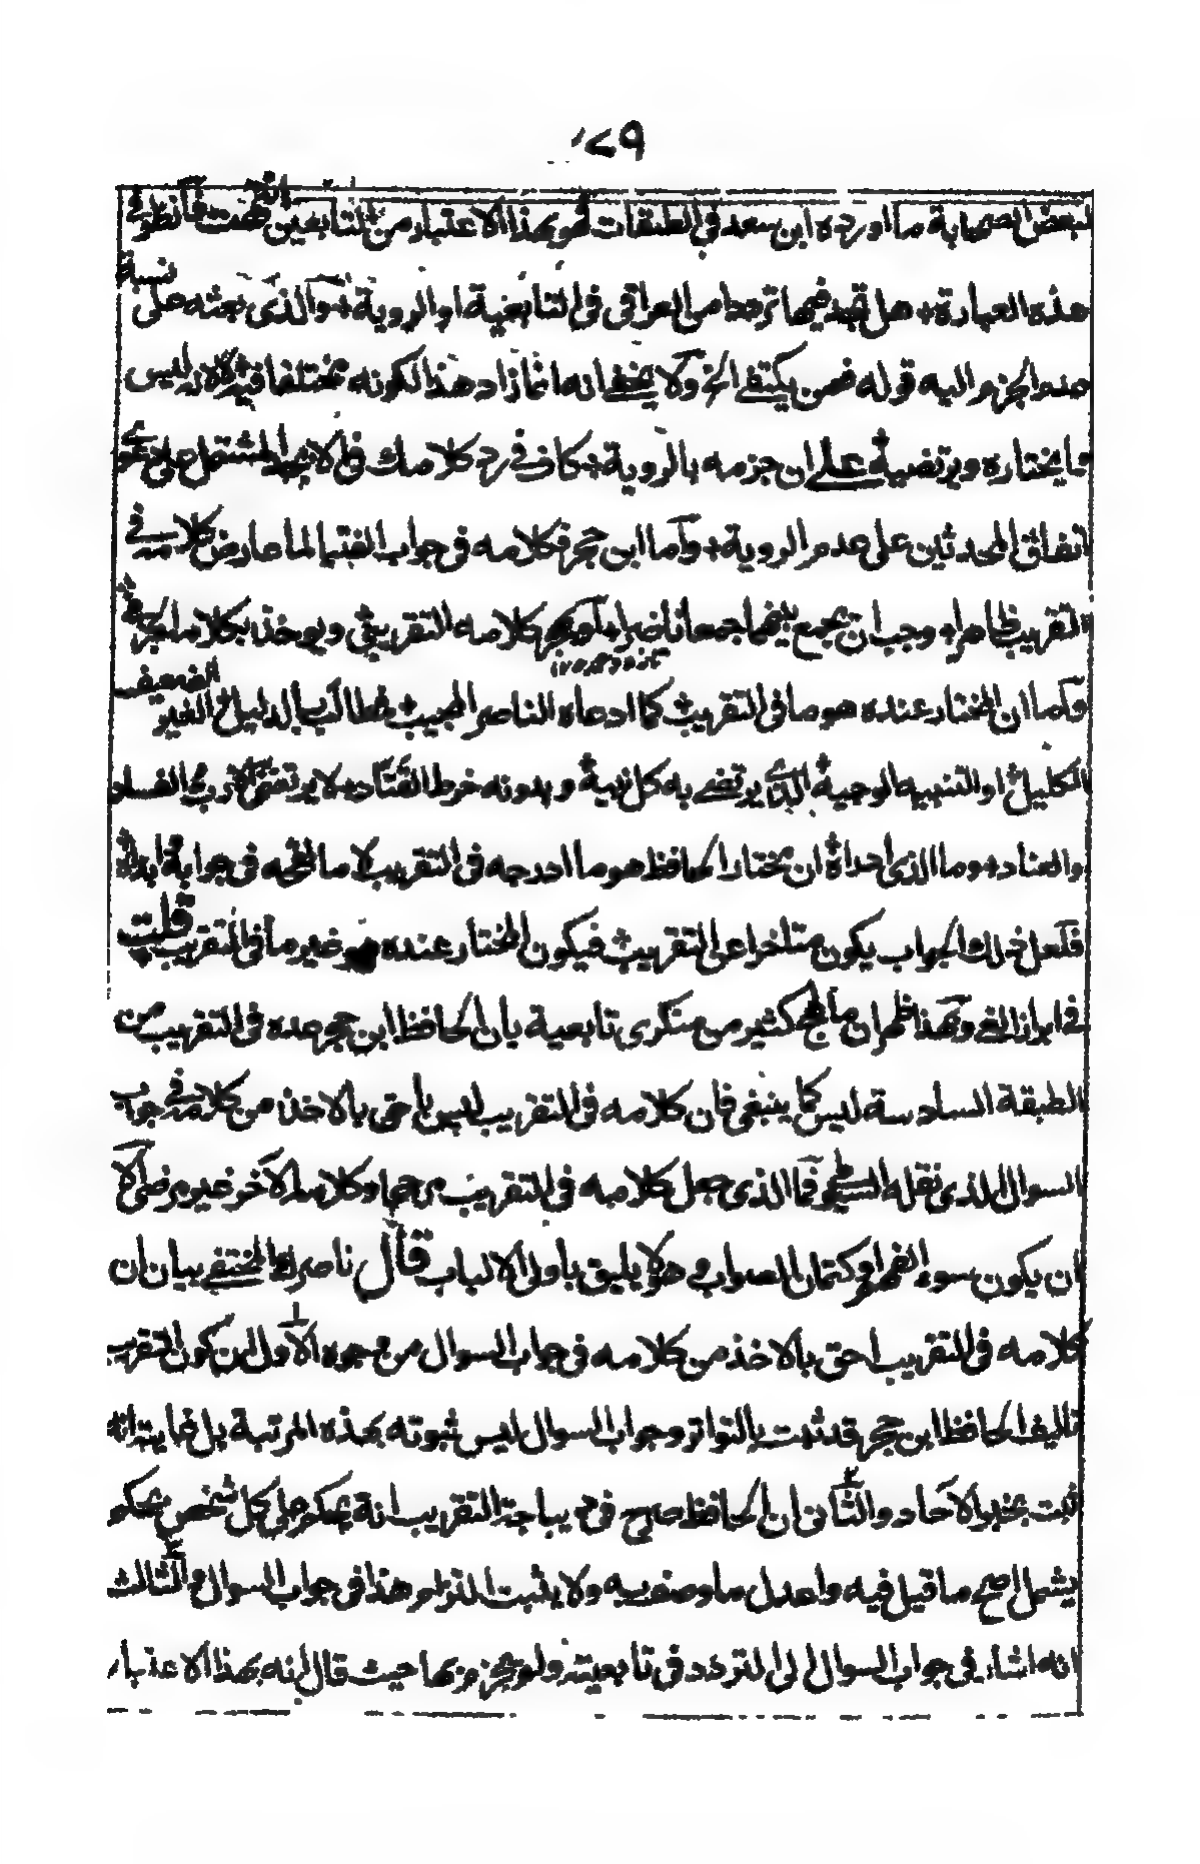 ١٢٩
لبعض الصحابة ما اورده ابن سعد في الطبقات فهو بهذا الاعتبار من التابعين انتهت فانظر في
هذه العبارة هل تجد فيها تردد من العراقي في التابعية او الروية والذي بعثه على نسبة
عدم الجزم اليه قوله فمن يكتفي الخ ولا يخفى انه انما زاد هذا لكونه مختلفا فيه لا لانه ليس
ما يختاره ويرتضيه على ان جزمه بالروية كاف في رد كلامك في الابجد المشتمل على نحو
اتفاق المحدثين على عدم الروية واما ابن حجر فكلامه في جواب الفتيا لما عارض كلامه في
التقريب ظاهرا وجب ان يجمع بينهما جمعا ناضرا كلامه التقريبي ويوخذ بكلامه
واما ان المختار عنده هو ما في التقريب كما ادعاه الناصر المجيب فطالب بالدليل الغير الضعيف
الكليل او التنبيه الوجيه الذي يرتضي به كل نبيه وبدونه خرط القتاد لا يرتضى الفساد
والعناد وما الذي ادراه ان مختار الحافظ هو ما ادرجه في التقريب لا ما في جوابه
فلعل ذلك الجواب يكون متاخرا عن التقريب فيكون المختار عنده هو غير ما في التقريب قلت
في ابراز الغي وبهذا ظهر ان ما لهج كثير من منكري تابعية بان الحافظ ابن حجر عده في التقريب من
الطبقة السادسة ليس كما ينبغي فان كلامه في التقريب ليس باحق بالاخذ من كلامه في جواب
السوال الذي نقله السيوطي فما الذي جعل كلامه في التقريب مرجحا وكلامه الآخر غير مرضي الا
ان يكون سوء الفهم او كتمان الصواب وهو لا يليق باولي الالباب قال ناصرك المختفي بيان ان
كلامه في التقريب احق بالاخذ من كلامه في جواب السوال من وجوه الاول ان كون التقريب
تاليف الحافظ ابن حجر قد ثبت بالتواتر وجواب السوال ليس ثبوته بهذه المرتبة بل غايته انه
ثبت بخبر الآحاد والثاني ان الحافظ صرح في ديباجة التقريب انه يحكم على كل شخص بحكم
يشمل اصح ما قيل فيه واعدل ما وصف به ولا يثبت التزام هذا في جواب السوال والثالث
انه اشار في جواب السوال الى التردد في تابعيته ولم يجزم بها حيث قال انه بهذا الاعتبار